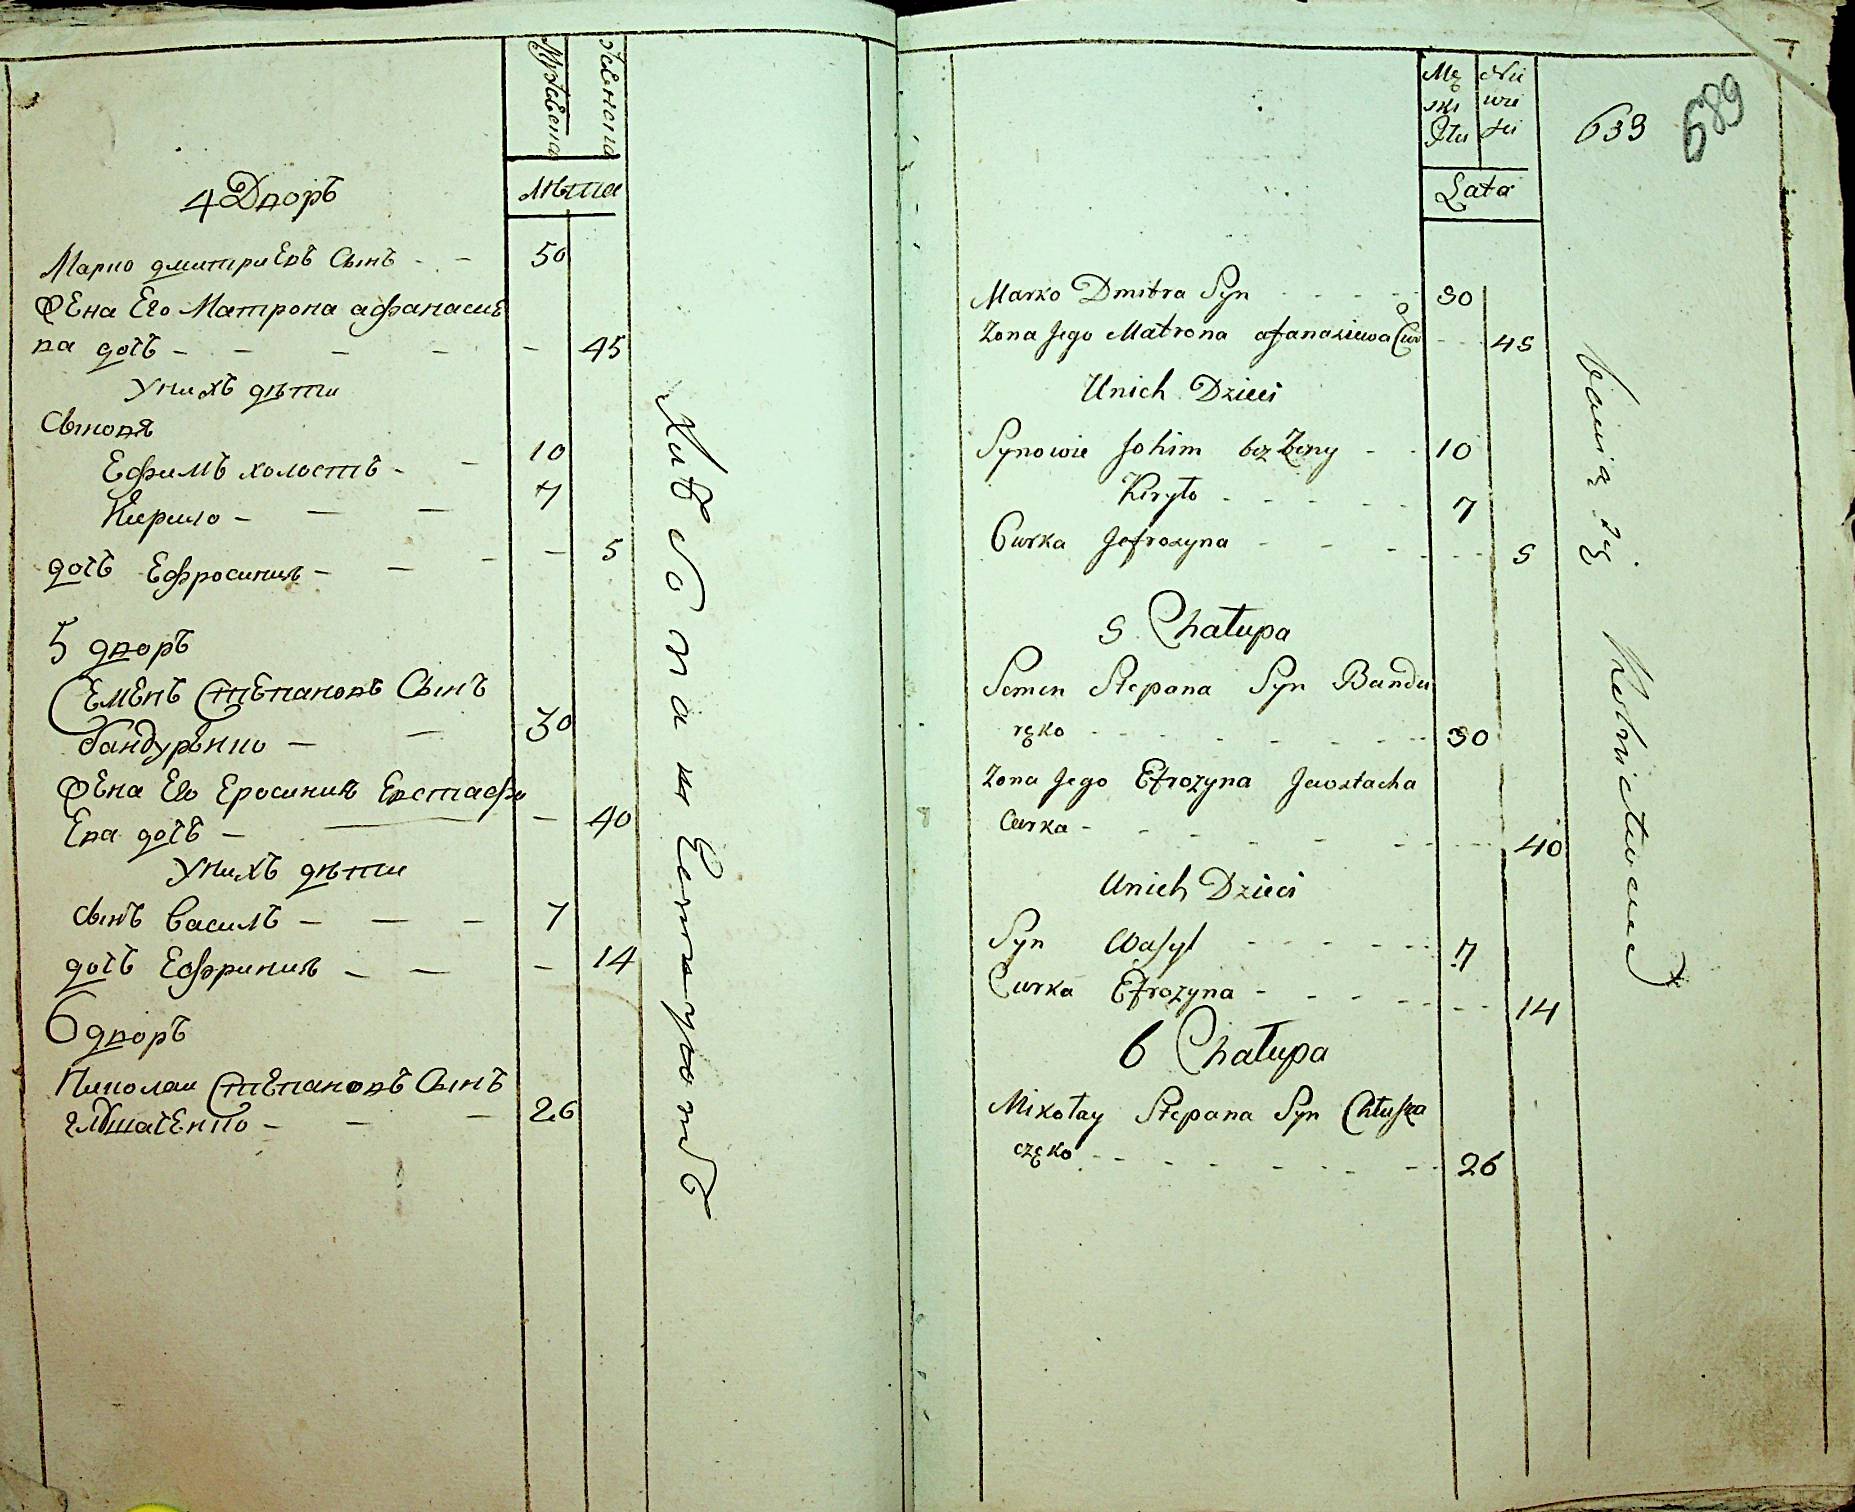 Мужеска
Женска
Лѣта
4 Дворъ
Марко Дмитриевъ Сынъ - - 50
Жена Его Матрона афанасие
ва дочь - - - - - 45
У нихъ дѣти
Сыновя
Ефимъ холостъ - - 10
Кирило - - - 7
дочь Ефросиния - - - - 5
5 дворъ
Семенъ Степановъ Сынъ
Бандурѣнко - - 30
Жена Его Еросиния Евстафи
Ева дочь - - 40
У нихъ дѣти
сынъ Василь - - - 7
дочь Ефриния - - - 14
6 дворъ
Николаи Степановъ Сынъ
26
Mę
ski
Płci
Nie
wie
ści
639
689
Lata
Marko Dmitra Syn - - - - 50
Zona Jego Matrona afanasiewa Cur - - 45
Unich Dzieci
Synowie Johim bez Zony - - 10
Kiryło - - - - 7
Curka Jefrozyna - - - - - 5
5 Chałupa
Semen Stepana Syn Bandu
ręko - - - - - - 30
Zona Jego Efrozyna Jewstacha
Curka - - - - - - 40
Unich Dzieci
Syn Wasyl - - - - 7
Curka Efrozyna - - - - - - 14
6 Chałupa
Mikołay Stepana Syn Chłusza
częko - - - - - - 26